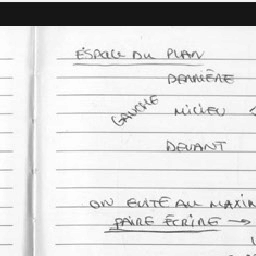 ESPACE DU PLAN
DERRIÈRE
GAUCHE MILIEU
DEVANT
ON ÉVITE AU MAXIM
FAIRE ÉCRIRE →